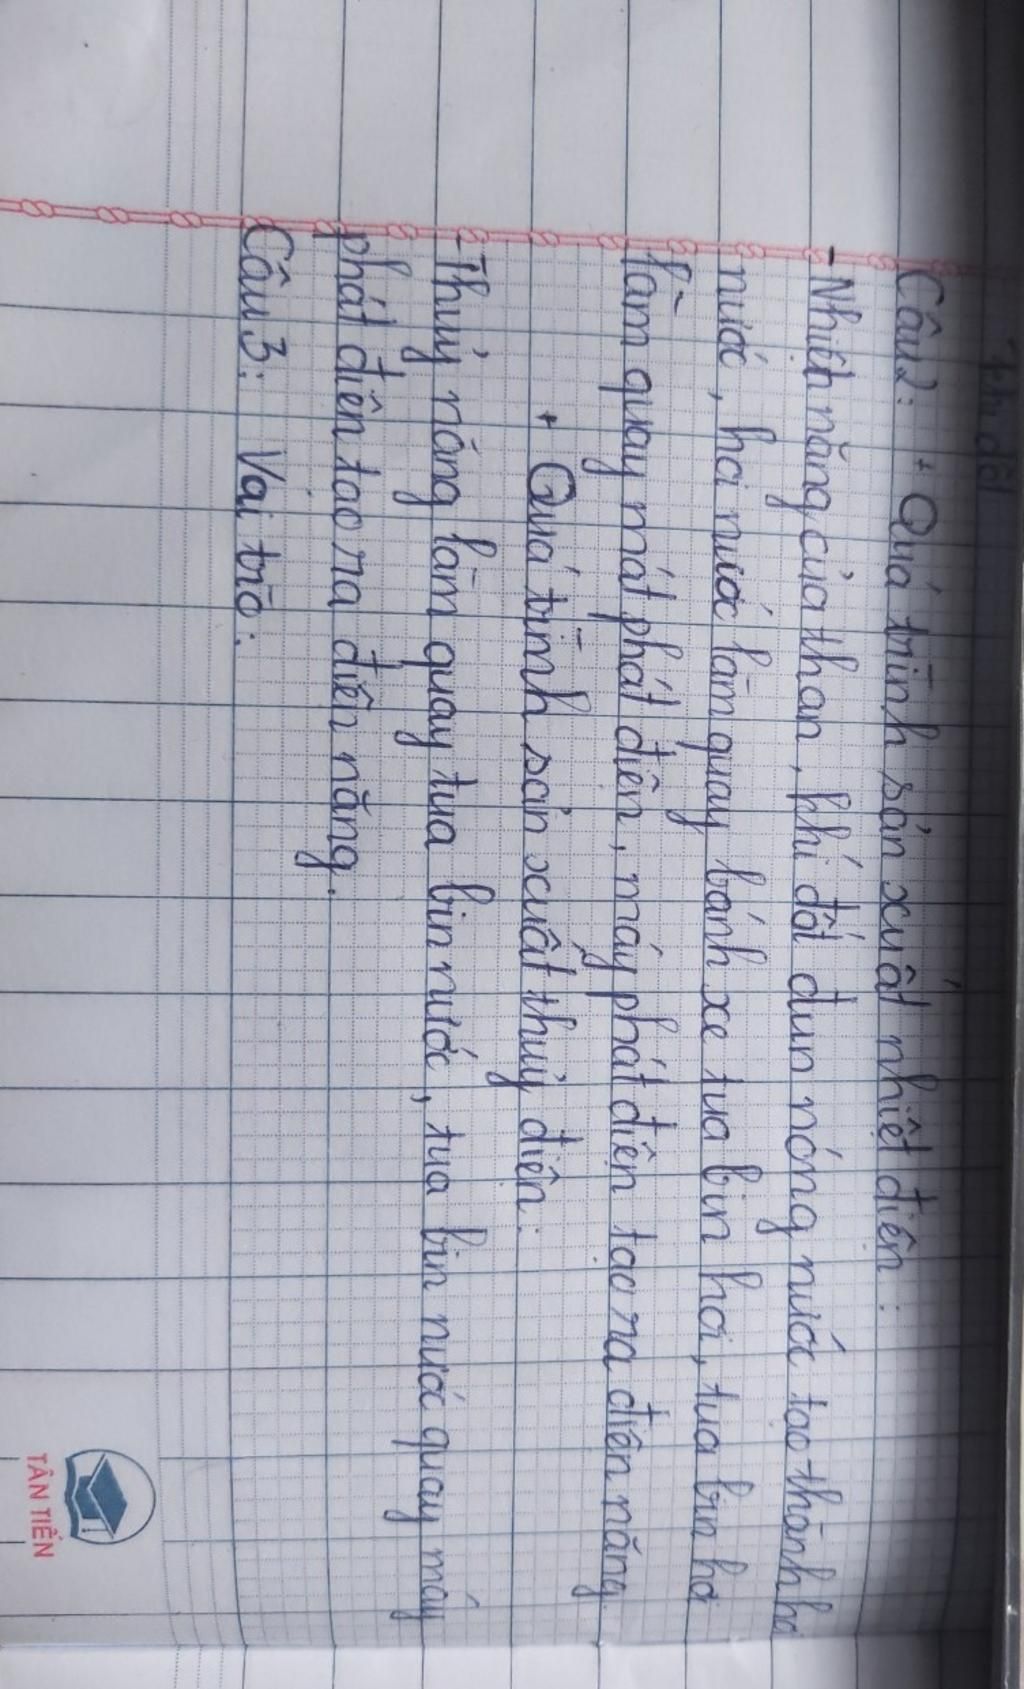 Câu 2: + Quá trình sản xuất nhiệt điện:
- Nhiệt năng của than, khí đốt đun nóng nước tạo thành hơ
nước, hơi nước làm quay bánh xe tua bin hơi, tua bin hơ
làm quay mát phát điện, máy phát điện tạo ra điện năng.
+ Quá trình sản xuất thuỷ điện:
- Thuỷ năng làm quay tua bin nước, tua bin nước quay máy
phát điện tạo ra điện năng.
Câu 3: Vai trò:
TÂN TIẾN